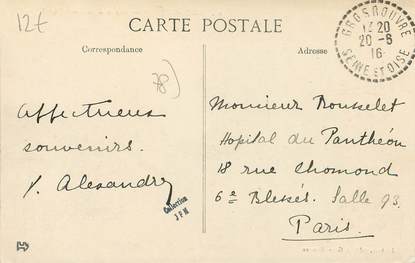 12€
CARTE POSTALE
Correspondance
Adresse
GROSROUVRE
14 20
20-6
16
SEINE ET OISE
78)
Affectueux
souvenirs.
Y. Alexandre
Collection
JPM
Monsieur Rousselet
Hopital du Panthéon
18 rue Lhomond
6e Blessés. Salle 93.
Paris.